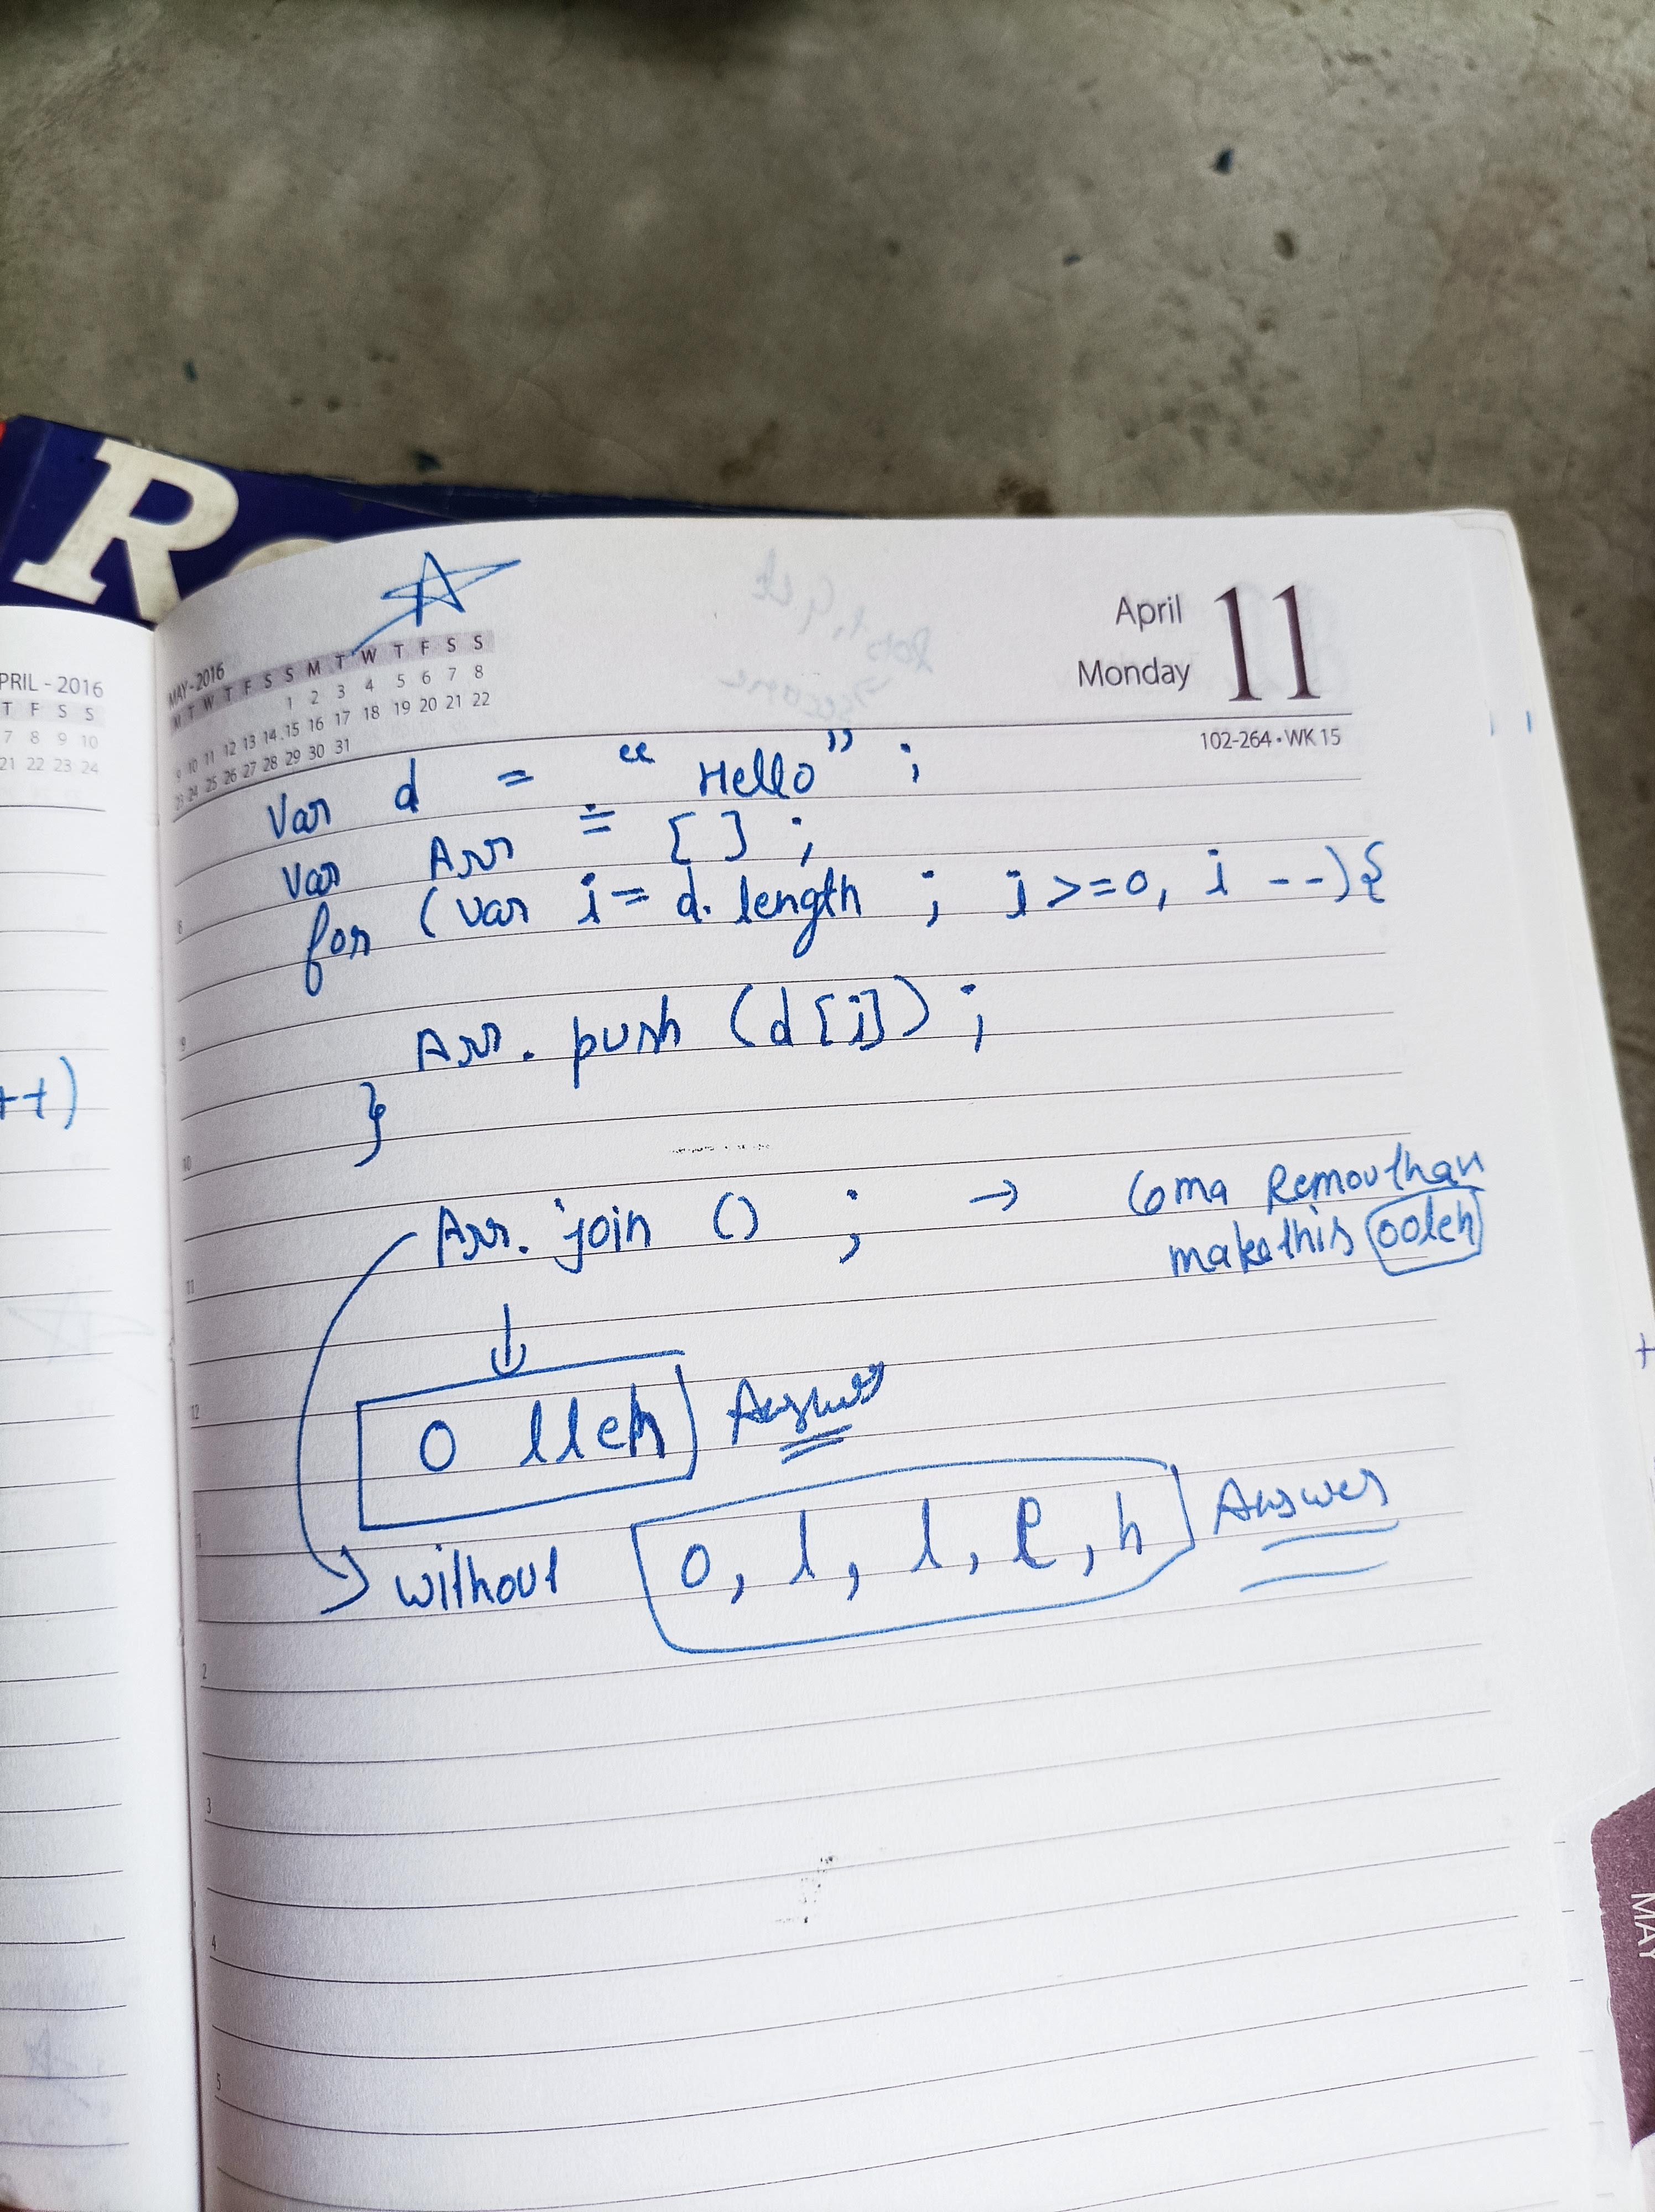 R
PRIL - 2016
T F S S
7 8 9 10
21 22 23 24
++)
MAY-2016
M T W T F S S M T W T F S S
1 2 3 4 5 6 7 8
9 10 11 12 13 14 15 16 17 18 19 20 21 22
23 24 25 26 27 28 29 30 31
April 11
Monday
102-264 • WK 15
Var d = “ Hello ” ;
Var Arr = [ ] ;
for ( var i = d. length ; i >=0, i --) {
Arr. push ( d [i]) ;
}
Arr. join () ; → Coma Remov than
make this ooleh
o lleh Answer
without o, l, l, e, h Answer
8
9
10
11
12
1
2
3
4
5
MAY